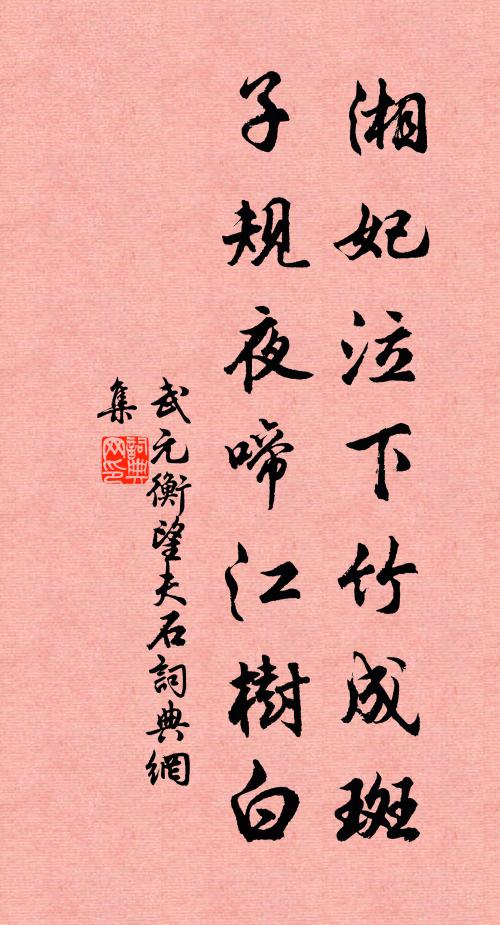 湘妃泣下竹成斑
子規夜啼江樹白
武元衡望夫石詞典網
集
詞典網印